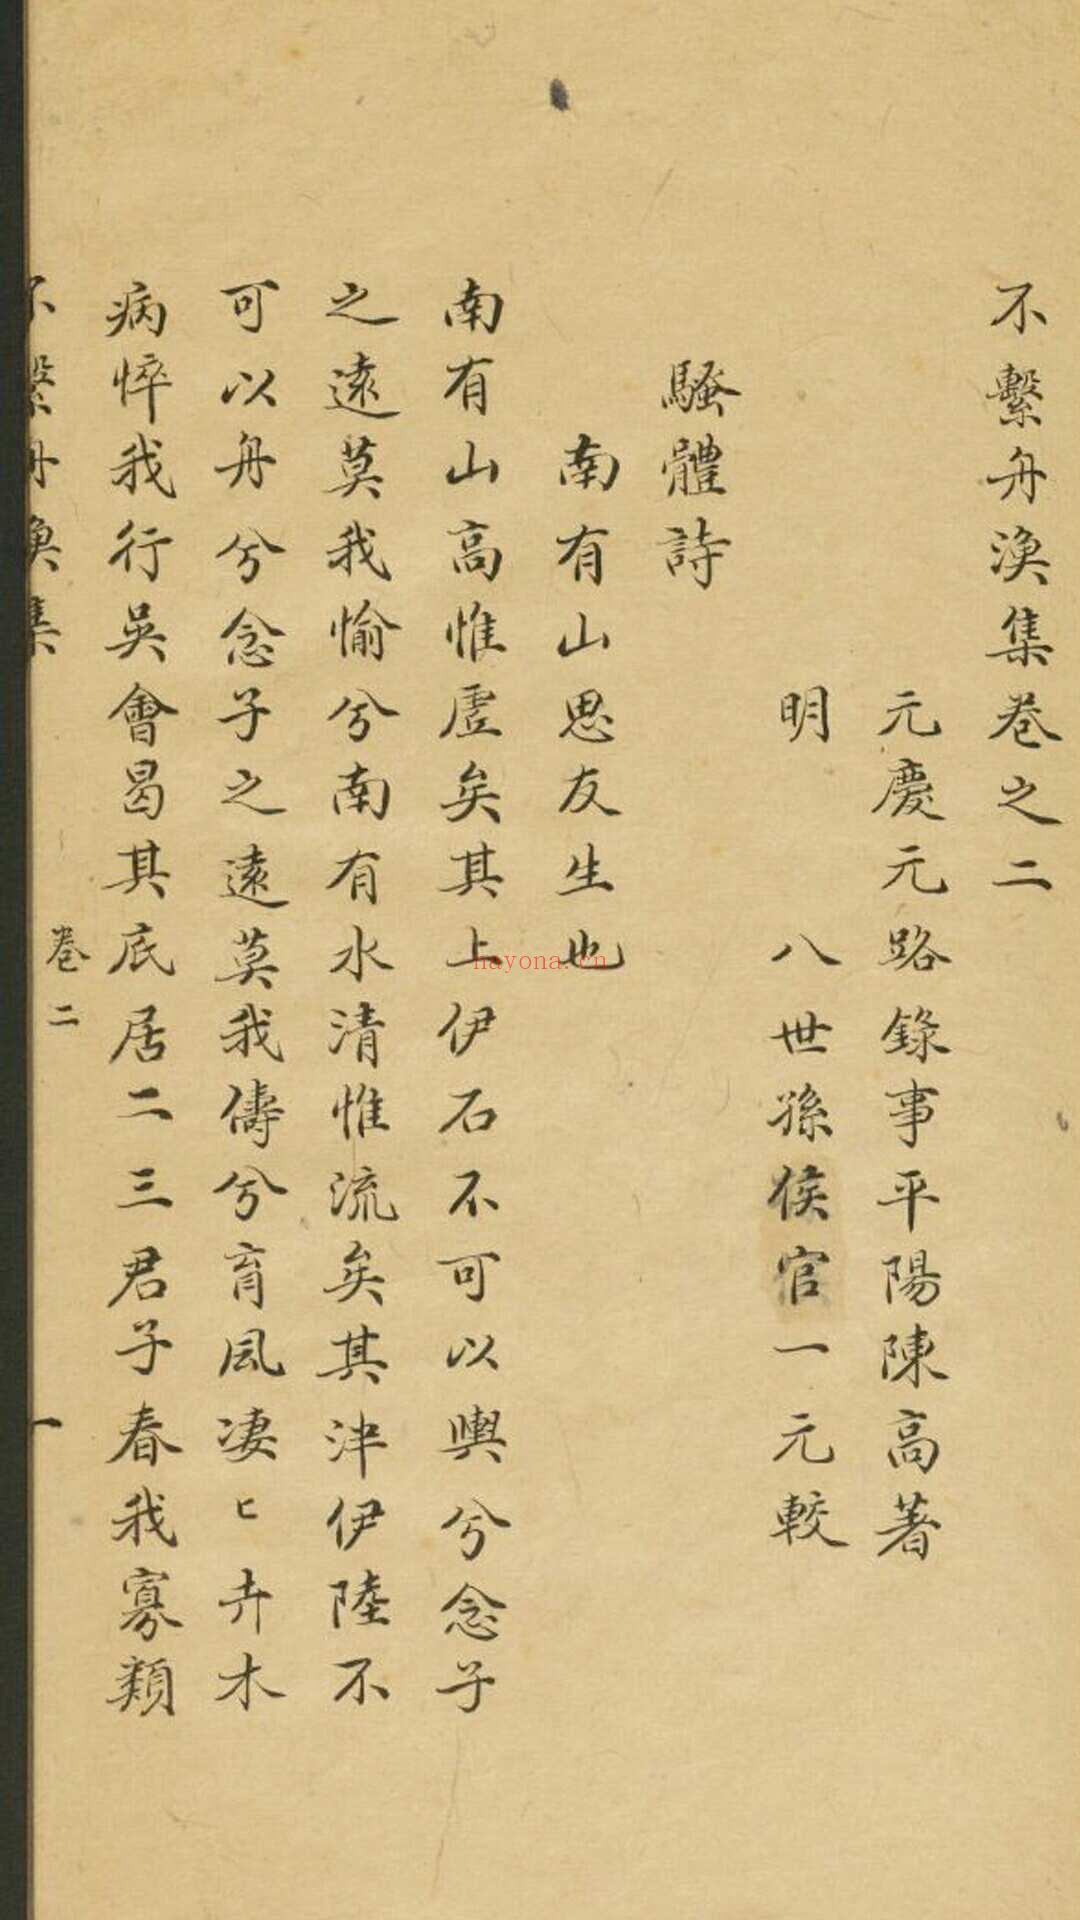 不繫舟漁集卷之二
元慶元路錄事平陽陳高著
明 八世孫侯官一元較
騷體詩
南有山思友生也
南有山高惟虗矣其上伊石不可以輿兮念子
之遠莫我愉兮南有水清惟流矣其津伊陸不
可以舟兮念子之遠莫我儔兮育風凄〻卉木
病悴我行吳會曷其底居二三君子春我寡類
不繫舟漁集
卷二
一
hayona.cn